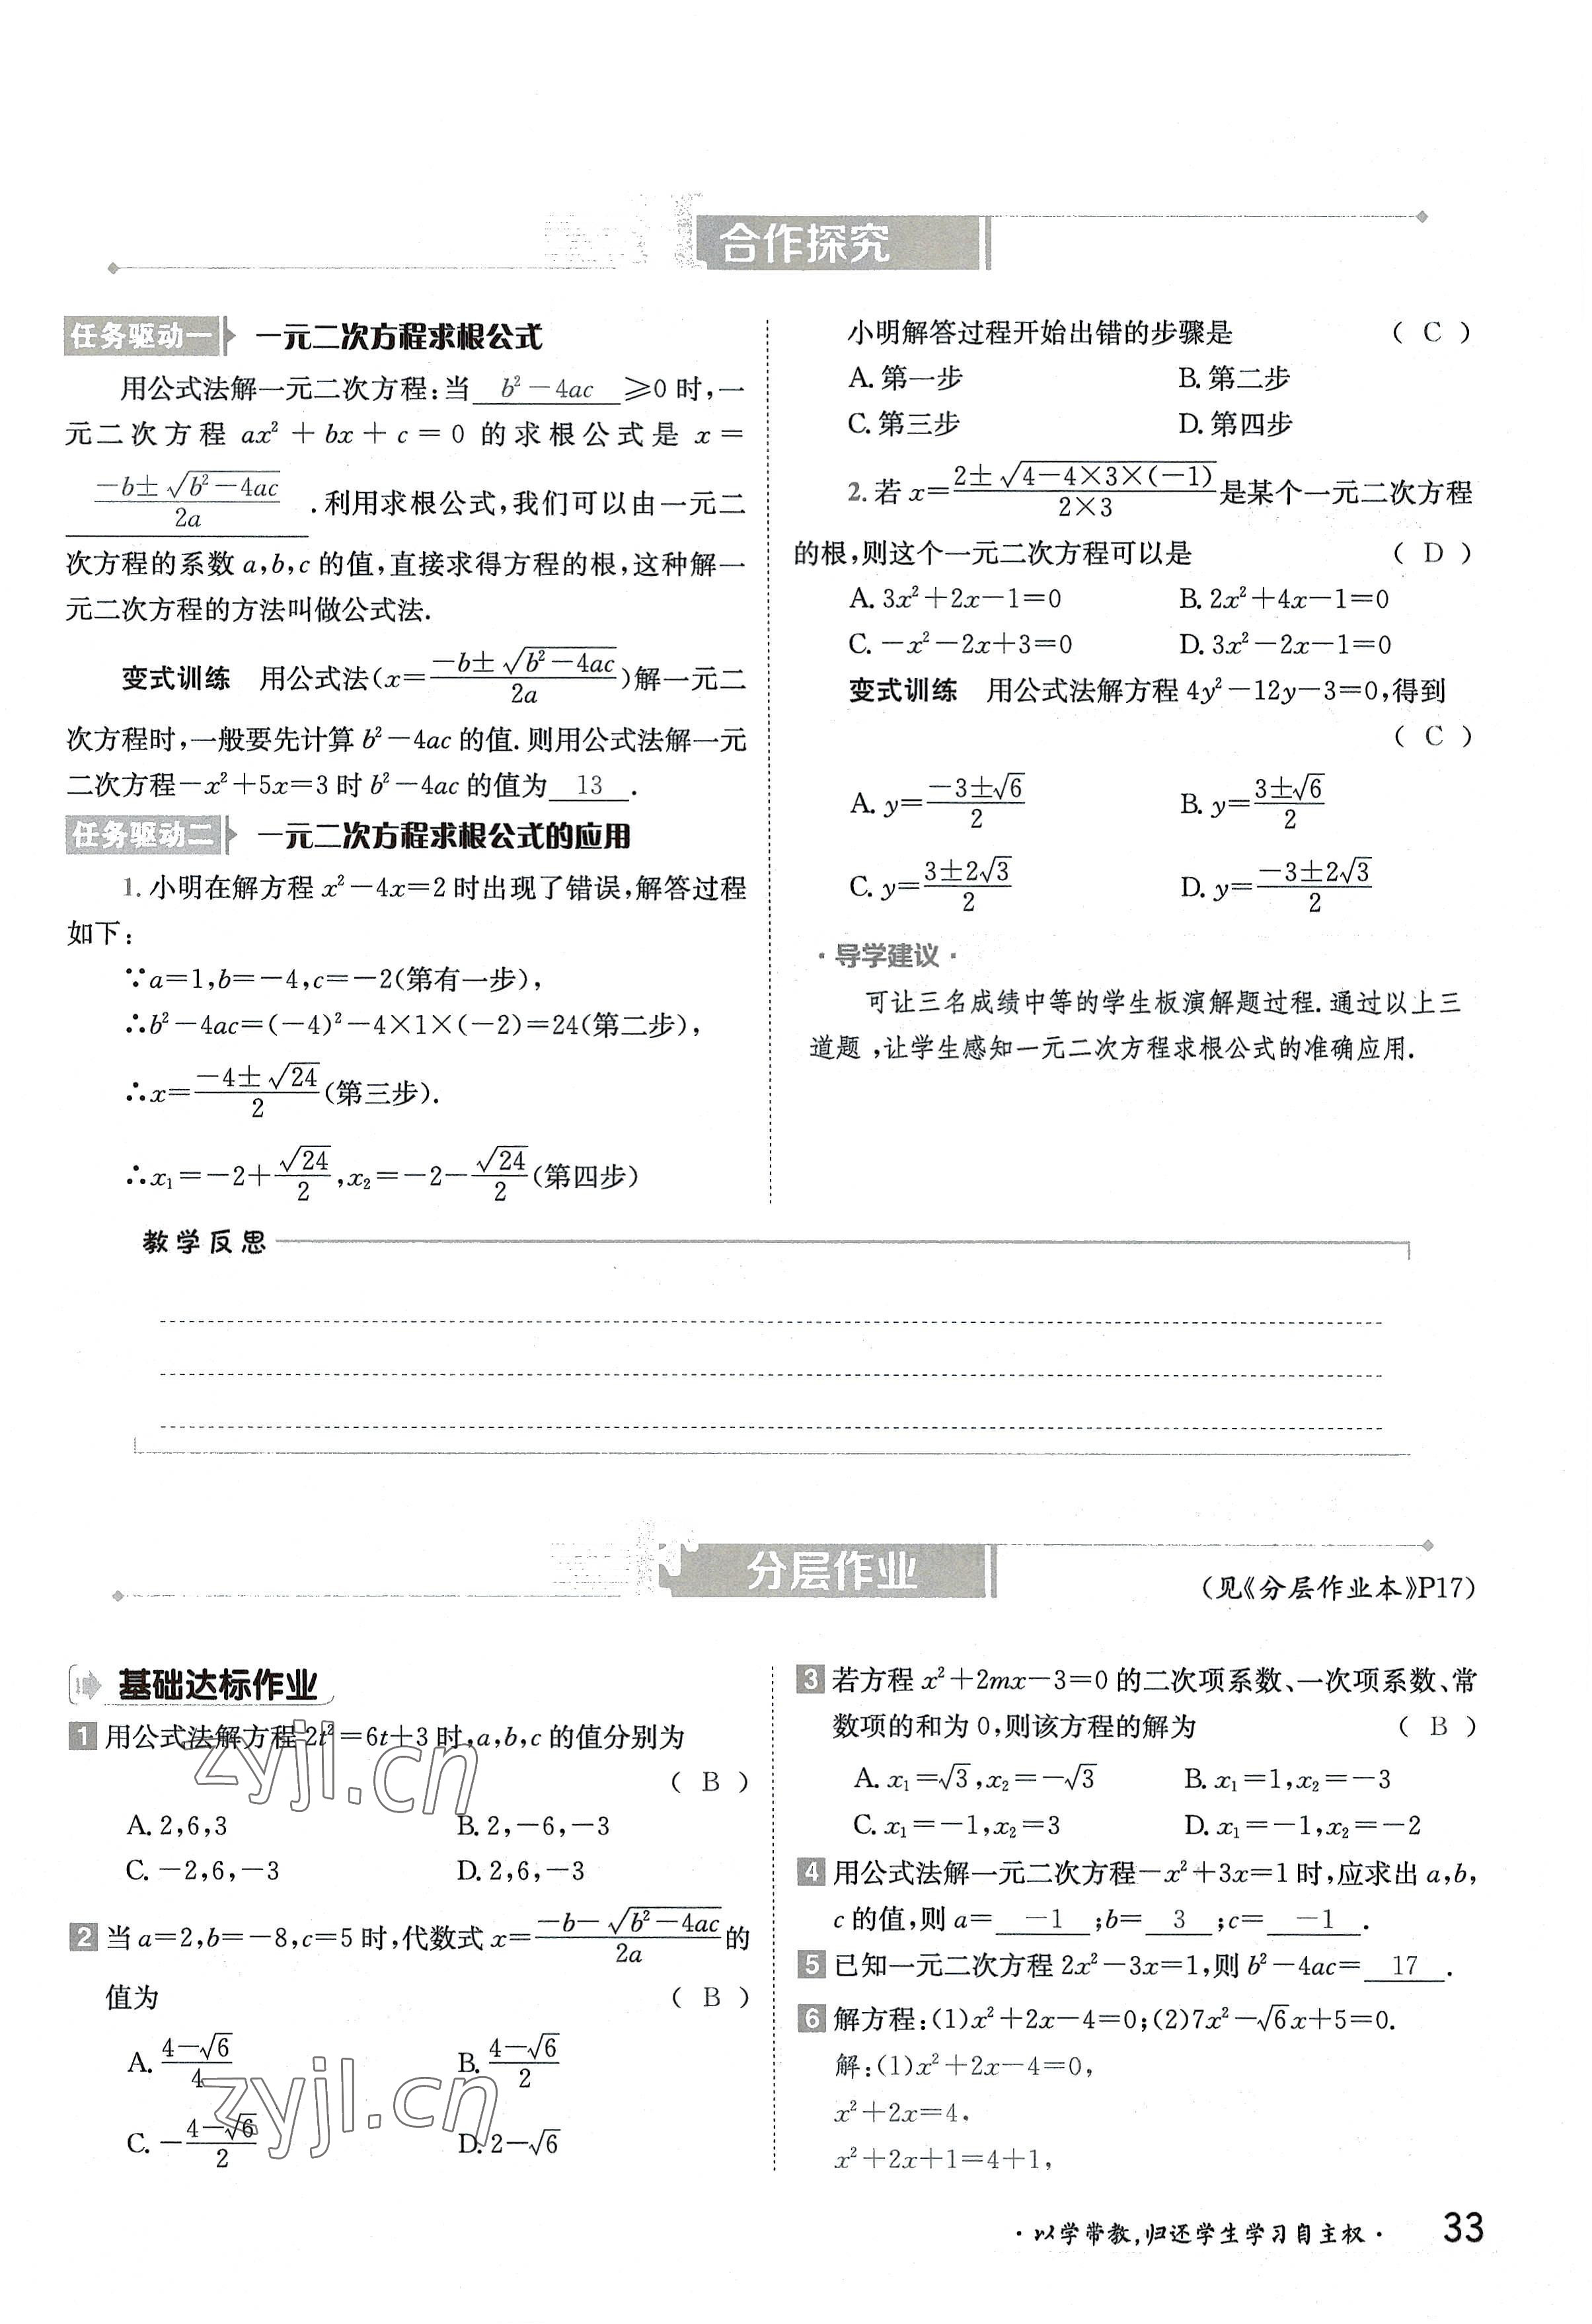 合作探究
任务驱动一 一元二次方程求根公式
用公式法解一元二次方程:当 b²-4ac ≥0时,一
元二次方程 ax²+bx+c=0 的求根公式是 x=
(-b±√(b²-4ac))/(2a) .利用求根公式,我们可以由一元二
次方程的系数 a,b,c 的值,直接求得方程的根,这种解一
元二次方程的方法叫做公式法.
变式训练 用公式法(x=(-b±√(b²-4ac))/(2a))解一元二
次方程时,一般要先计算 b²-4ac 的值.则用公式法解一元
二次方程-x²+5x=3 时 b²-4ac 的值为 13 .
任务驱动二 一元二次方程求根公式的应用
1.小明在解方程 x²-4x=2 时出现了错误,解答过程
如下:
∵a=1,b=-4,c=-2(第有一步),
∴b²-4ac=(-4)²-4×1×(-2)=24(第二步),
∴x=(-4±√24)/2(第三步).
∴x₁=-2+√24/2,x₂=-2-√24/2(第四步)
小明解答过程开始出错的步骤是 ( C )
A.第一步 B.第二步
C.第三步 D.第四步
2.若 x=(2±√(4-4×3×(-1)))/(2×3)是某个一元二次方程
的根,则这个一元二次方程可以是 ( D )
A.3x²+2x-1=0 B.2x²+4x-1=0
C.-x²-2x+3=0 D.3x²-2x-1=0
变式训练 用公式法解方程 4y²-12y-3=0,得到
( C )
A.y=(-3±√6)/2 B.y=(3±√6)/2
C.y=(3±2√3)/2 D.y=(-3±2√3)/2
·导学建议·
可让三名成绩中等的学生板演解题过程.通过以上三
道题,让学生感知一元二次方程求根公式的准确应用.
教学反思
分层作业
(见《分层作业本》P17)
基础达标作业
1 用公式法解方程 2t²=6t+3 时,a,b,c 的值分别为
( B )
A.2,6,3 B.2,-6,-3
C.-2,6,-3 D.2,6,-3
2 当 a=2,b=-8,c=5 时,代数式 x=(-b-√(b²-4ac))/(2a)的
值为 ( B )
A.(4-√6)/4 B.(4-√6)/2
C.-(4-√6)/2 D.2-√6
3 若方程 x²+2mx-3=0 的二次项系数、一次项系数、常
数项的和为 0,则该方程的解为 ( B )
A.x₁=√3,x₂=-√3 B.x₁=1,x₂=-3
C.x₁=-1,x₂=3 D.x₁=-1,x₂=-2
4 用公式法解一元二次方程-x²+3x=1 时,应求出 a,b,
c 的值,则 a= -1 ;b= 3 ;c= -1 .
5 已知一元二次方程 2x²-3x=1,则 b²-4ac= 17 .
6 解方程:(1)x²+2x-4=0;(2)7x²-√6x+5=0.
解:(1)x²+2x-4=0,
x²+2x=4,
x²+2x+1=4+1,
zyjl.cn
zyjl.cn
·以学带教,归还学生学习自主权· 33